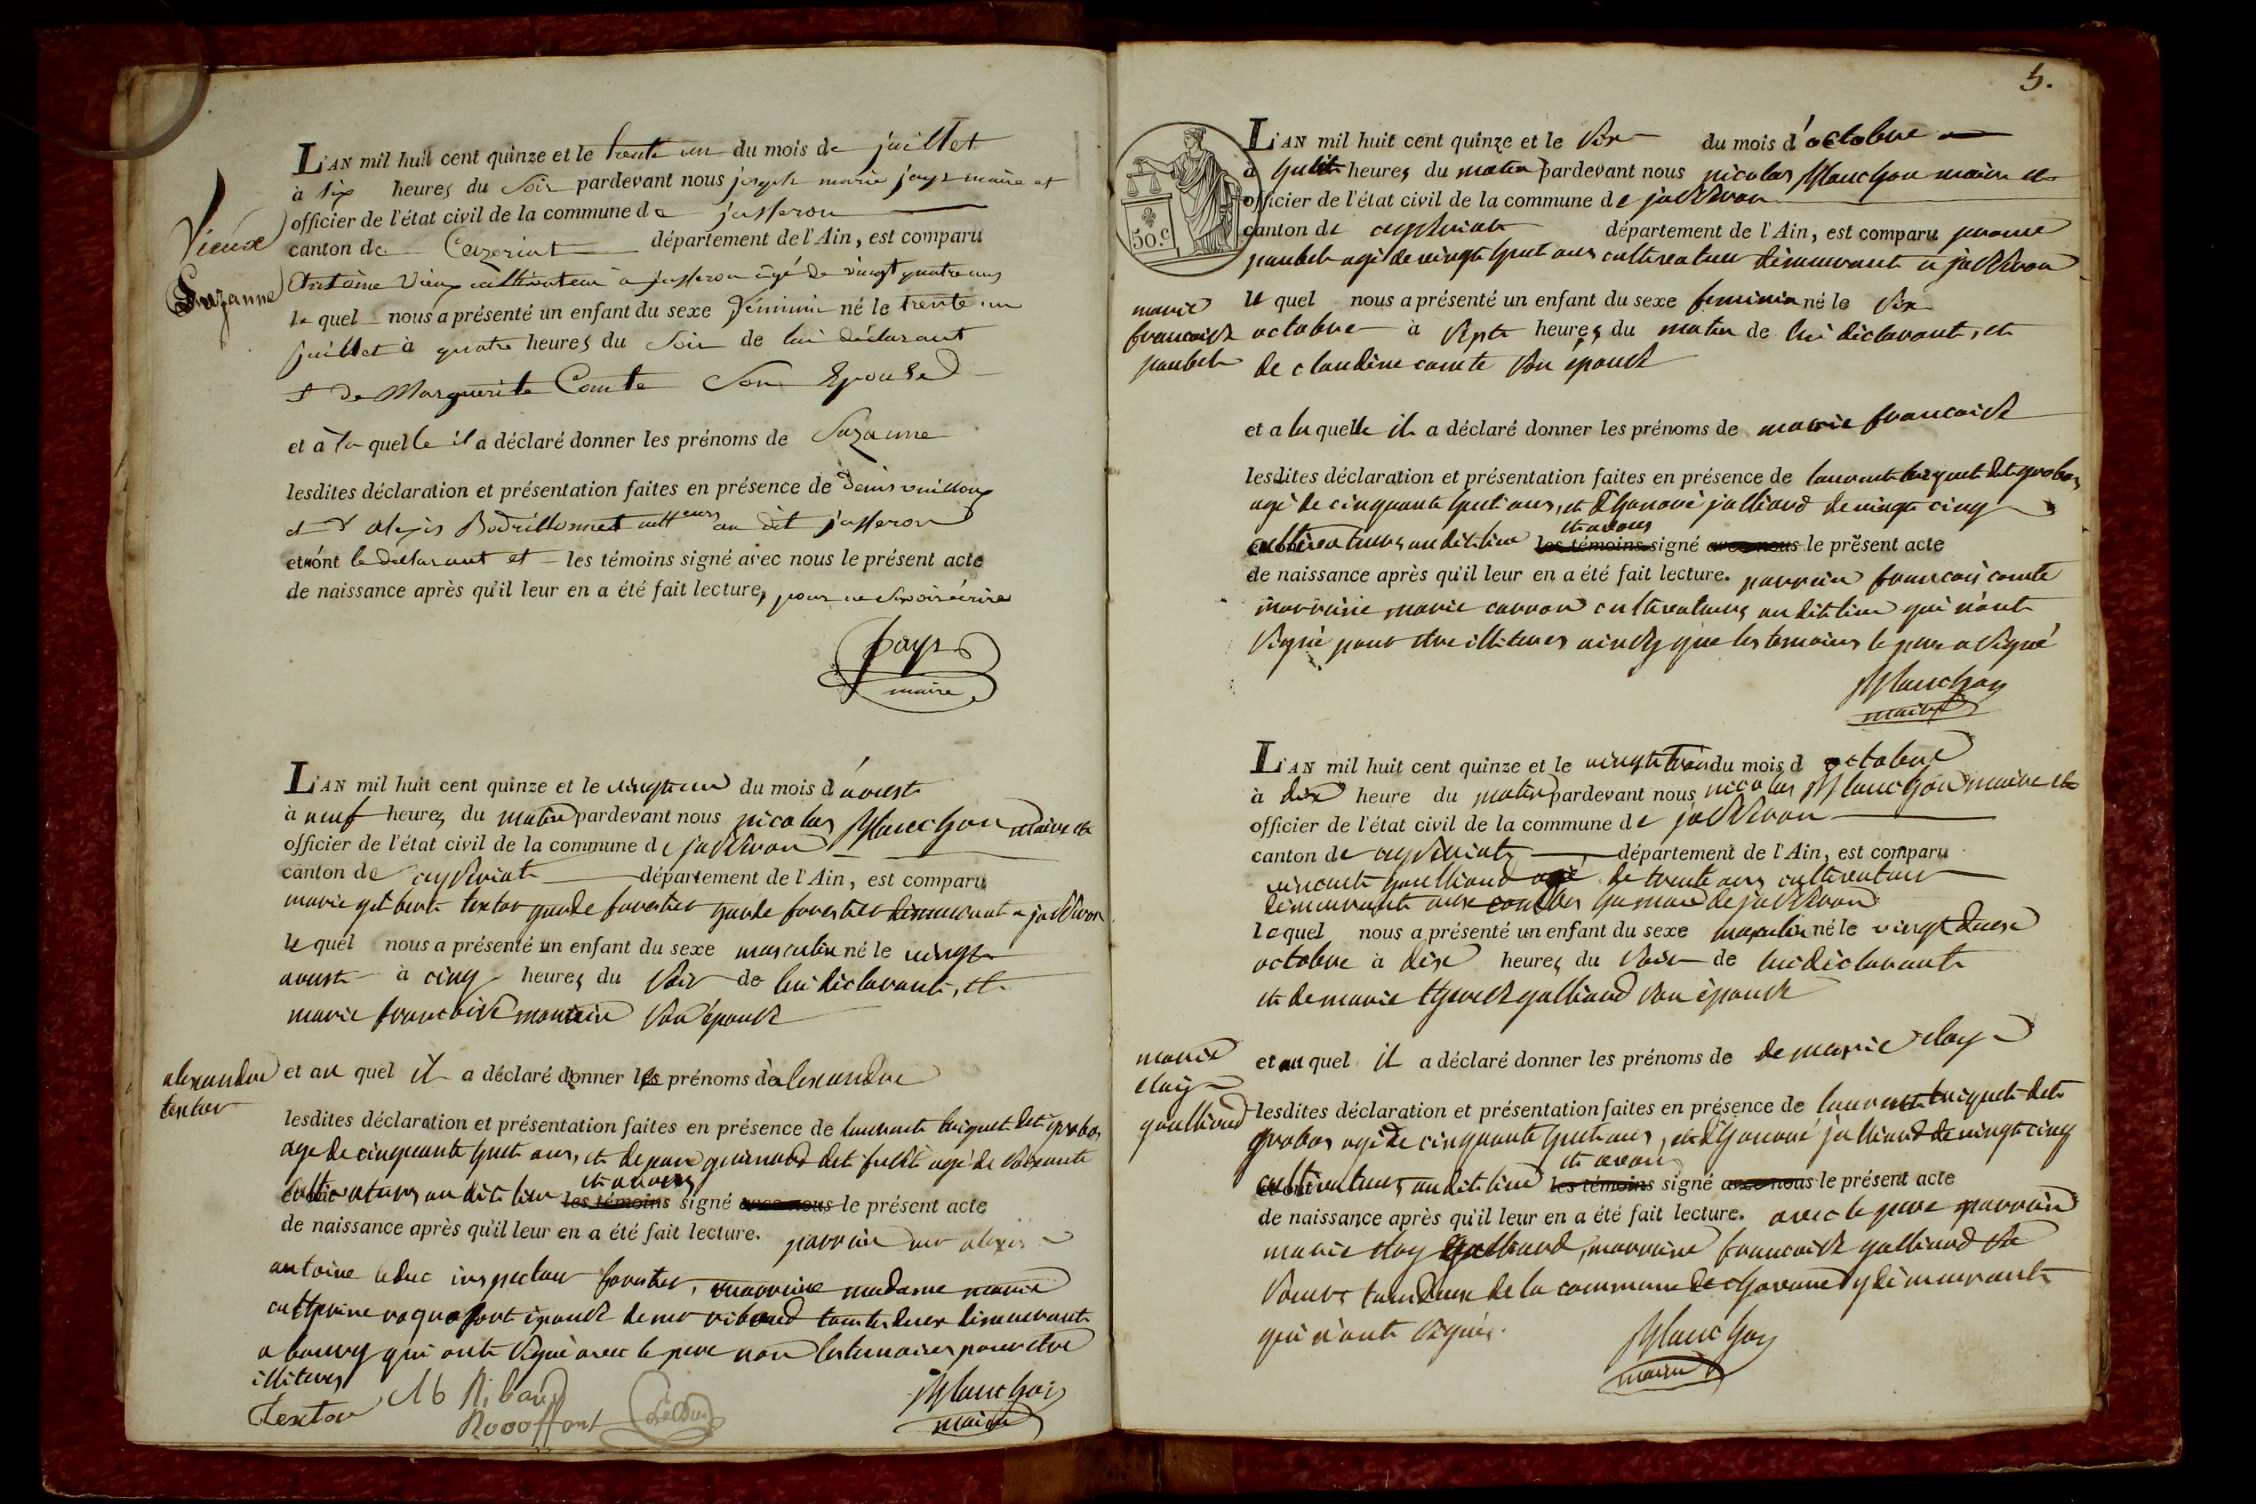 L'AN mil huit cent quinze et le trente un du mois de juillet
à six heures du soir pardevant nous joseph marie jayr maire et
officier de l'état civil de la commune de jasseron
canton de Ceyzeriat département de l'Ain, est comparu
Vieux
Suzanne
Antoine Vieux cultivateur à jasseron âgé de vingt quatre ans
le quel nous a présenté un enfant du sexe féminin né le trente un
juillet à quatre heures du soir de lui déclarant
et de Marguerite Comte son Epouse
et à la quelle il a déclaré donner les prénoms de Suzanne
lesdites déclaration et présentation faites en présence de Denis vuilloux
et d'alexis Bodrillonnet cultteurs au dit jasseron
et n'ont le déclarant et les témoins signé avec nous le présent acte
de naissance après qu'il leur en a été fait lecture, pour ne savoir écrire
Jayr
maire
L'AN mil huit cent quinze et le vingt un du mois d'aoust
à neuf heures du matin pardevant nous nicolas Planchon maire et
officier de l'état civil de la commune de jasseron
canton de ceyseriat département de l'Ain, est comparu
marie gilbert textor garde forestier garde forestier demeurant a jasseron
le quel nous a présenté un enfant du sexe masculin né le vingt
aoust à cinq heures du soir de lui déclarant, et
marie francoise son épouse
alexandre
textor
et au quel il a déclaré donner les prénoms d'alexandre
lesdites déclaration et présentation faites en présence de laurent buiquet dit grobas
age de cinquante huit ans, et de dit agé de soixante
cultivateurs au dit lieu et avons les témoins signé avec nous le présent acte
de naissance après qu'il leur en a été fait lecture. parrain mr alexis
antoine leduc inspecteur forestier, marraine madame marie
catherine roquefort épouse de mr riboud tout deux demeurants
a bourg qui ont signé avec le pere non les temoins pour etre
illiteres
Textor Riboud
Planchon
maire
5.
L'AN mil huit cent quinze et le six du mois d'octobre
à huit heures du matin pardevant nous nicolas Planchon maire et
officier de l'état civil de la commune de jasseron
50.c
canton de ceyseriat département de l'Ain, est comparu
joubet agé de vingt huit ans cultivateur demeurant a jasseron
marie
francoise
joubet
le quel nous a présenté un enfant du sexe feminin né le six
octobre à sept heures du matin de lui déclarant, et
de claudine comte son épouse
et a la quelle il a déclaré donner les prénoms de marie francoise
lesdites déclaration et présentation faites en présence de laurent buiquet dit grobas
agé de cinquante huit ans, et d'honoré jalliard de vingt cinq
cultivateurs au dit lieu et avons les témoins signé avec nous le présent acte
de naissance après qu'il leur en a été fait lecture. parrain francois comte
marraine marie carron cultivateurs au dit lieu qui n'ont
signé pour etre illiteres ainsy que les temoins le pere a signé
Planchon
maire
L'AN mil huit cent quinze et le vingt trois du mois d octobre
à dix heure du matin pardevant nous nicolas Planchon maire et
officier de l'état civil de la commune de jasseron
canton de ceyseriat département de l'Ain, est comparu
vincent goulliaud agé de trente ans cultivateur
demeurant aux combes hameau de jasseron
le quel nous a présenté un enfant du sexe masculin né le vingt deux
octobre à dix heures du soir de lui déclarant
et de marie therese galliard son épouse
marie
eloy
goulliaud
et au quel il a déclaré donner les prénoms de de marie eloy
lesdites déclaration et présentation faites en présence de laurent buiquet dit
grobas agé de cinquante huit ans, et d'honoré jalliard de vingt cinq
cultivateurs au dit lieu et avons les témoins signé avec nous le présent acte
de naissance après qu'il leur en a été fait lecture. avec le pere parrain
marie eloy galliard, marraine francoise galliard sa
soeur tout deux de la commune de y demeurants
qui n'ont signés.
Planchon
maire